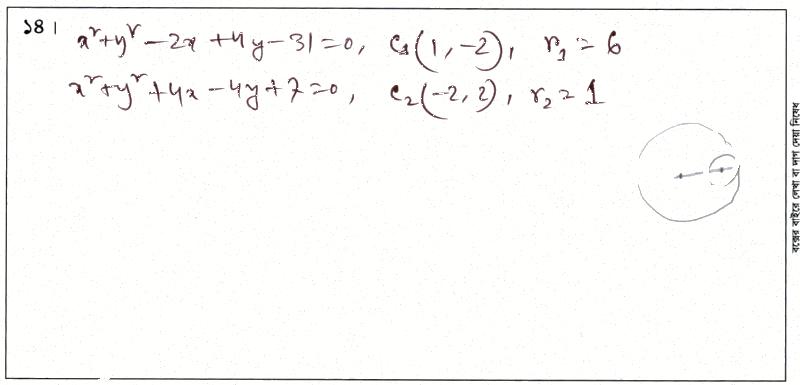 ১৪। x²+y²-2x+4y-31=0, c₁(1,-2), r₁=6
x²+y²+4x-4y+7=0, c₂(-2,2), r₂=1
বক্সের বাইরে লেখা বা দাগ দেয়া নিষেধ